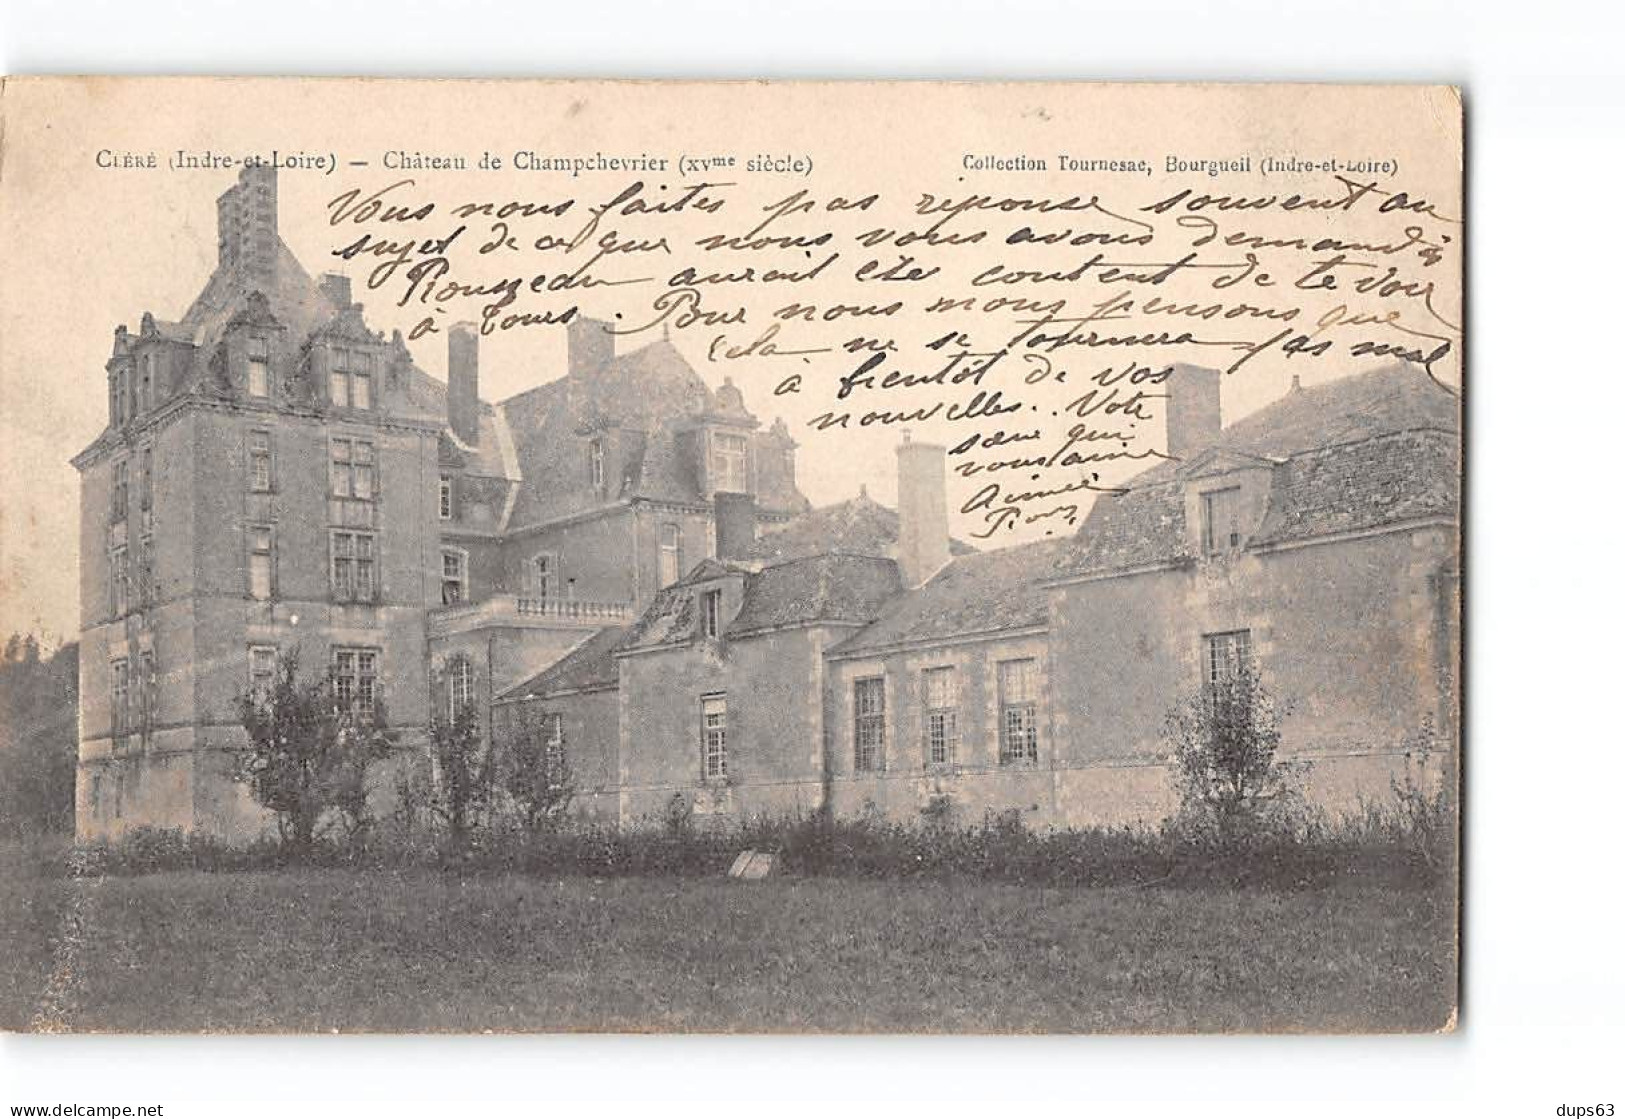 CLÉRÉ (Indre-et-Loire) — Château de Champchevrier (XVme siècle)
Collection Tournesac, Bourgueil (Indre-et-Loire)
Vous nous faites pas réponse souvent au
sujet de ce que nous vous avons demandés
Rousseau aurait été content de te voir
à Tours. Pour nous nous pensons que
cela ne se tournera pas mal
à bientôt de vos
nouvelles.. Vote
sœur qui
vous aime
Aimée
www.delcampe.net
dups63